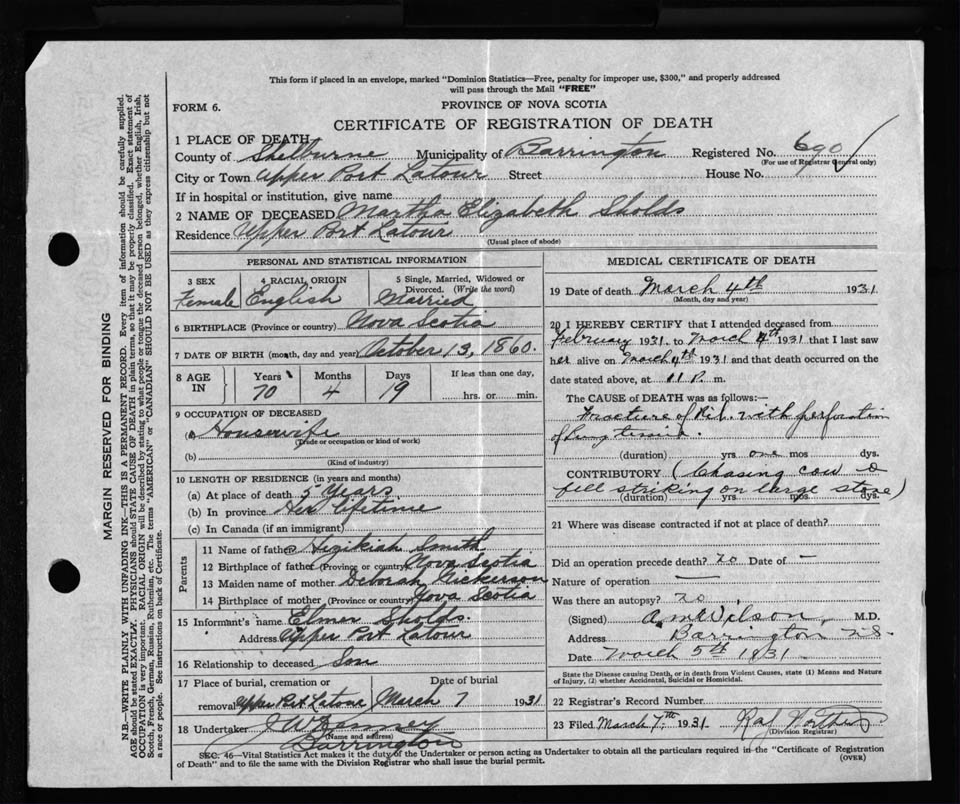 This form if placed in an envelope, marked "Dominion Statistics—Free, penalty for improper use, $300," and properly addressed
will pass through the Mail "FREE"
FORM 6.
PROVINCE OF NOVA SCOTIA
CERTIFICATE OF REGISTRATION OF DEATH
1 PLACE OF DEATH
County of Shelburne Municipality of Barrington Registered No. 690
(For use of Registrar General only)
City or Town Upper Port Latour Street House No.
If in hospital or institution, give name
2 NAME OF DECEASED Martha Elizabeth Sholds
Residence Upper Port Latour
(Usual place of abode)
PERSONAL AND STATISTICAL INFORMATION
3 SEX 4 RACIAL ORIGIN 5 Single, Married, Widowed or
Divorced. (Write the word)
Female English Married
6 BIRTHPLACE (Province or country) Nova Scotia
7 DATE OF BIRTH (month, day and year) October 13, 1860.
8 AGE IN Years Months Days If less than one day,
70 4 19 hrs. or min.
9 OCCUPATION OF DECEASED
(a) Housewife
(Trade or occupation or kind of work)
(b)
(Kind of industry)
10 LENGTH OF RESIDENCE (in years and months)
(a) At place of death 5 Years
(b) In province Her lifetime
(c) In Canada (if an immigrant)
Parents
11 Name of father Hezikiah Smith
12 Birthplace of father (Province or country) Nova Scotia
13 Maiden name of mother Deborah Nickerson
14 Birthplace of mother (Province or country) Nova Scotia
15 Informant's name Elmer Sholds.
Address Upper Port Latour
16 Relationship to deceased Son
17 Place of burial, cremation or Date of burial
removal Upper Port Latour March 7 1931
18 Undertaker J W Kenney
(Name and address)
Barrington
MEDICAL CERTIFICATE OF DEATH
19 Date of death March 4th 1931
(Month, day and year)
20 I HEREBY CERTIFY that I attended deceased from
February 1931. to March 4th 1931 that I last saw
her alive on March 4th 1931 and that death occurred on the
date stated above, at 11 P. m.
The CAUSE of DEATH was as follows:—
Fracture of Rib. with perforation
of lung
(duration) yrs. one mos dys.
CONTRIBUTORY (Chasing cow &
fell striking on large stone)
(duration) yrs. mos. dys.
21 Where was disease contracted if not at place of death?
Did an operation precede death? no Date of —
Nature of operation —
Was there an autopsy? no
(Signed) A. M. Wilson, M.D.
Address Barrington N.S.
Date March 5th 1931
State the Disease causing Death, or in death from Violent Causes, state (1) Means and Nature
of Injury, (2) whether Accidental, Suicidal or Homicidal.
22 Registrar's Record Number
23 Filed March 7th 1931
(Division Registrar)
SEC. 46—Vital Statistics Act makes it the duty of the Undertaker or person acting as Undertaker to obtain all the particulars required in the "Certificate of Registration
of Death" and to file the same with the Division Registrar who shall issue the burial permit.
(OVER)
MARGIN RESERVED FOR BINDING
N.B.—WRITE PLAINLY WITH UNFADING INK—THIS IS A PERMANENT RECORD. Every item of information should be carefully supplied.
AGE should be stated EXACTLY. PHYSICIANS should STATE CAUSE OF DEATH in plain terms, so that it may be properly classified. Exact statement of
OCCUPATION is very important. RACIAL ORIGIN will be described by stating to what people or tongue the deceased person belonged, whether English, Irish,
Scotch, French, German, Russian, Ruthenian, etc. The terms "AMERICAN" or "CANADIAN" SHOULD NOT BE USED as they express citizenship but not
a race or people. See instructions on back of Certificate.